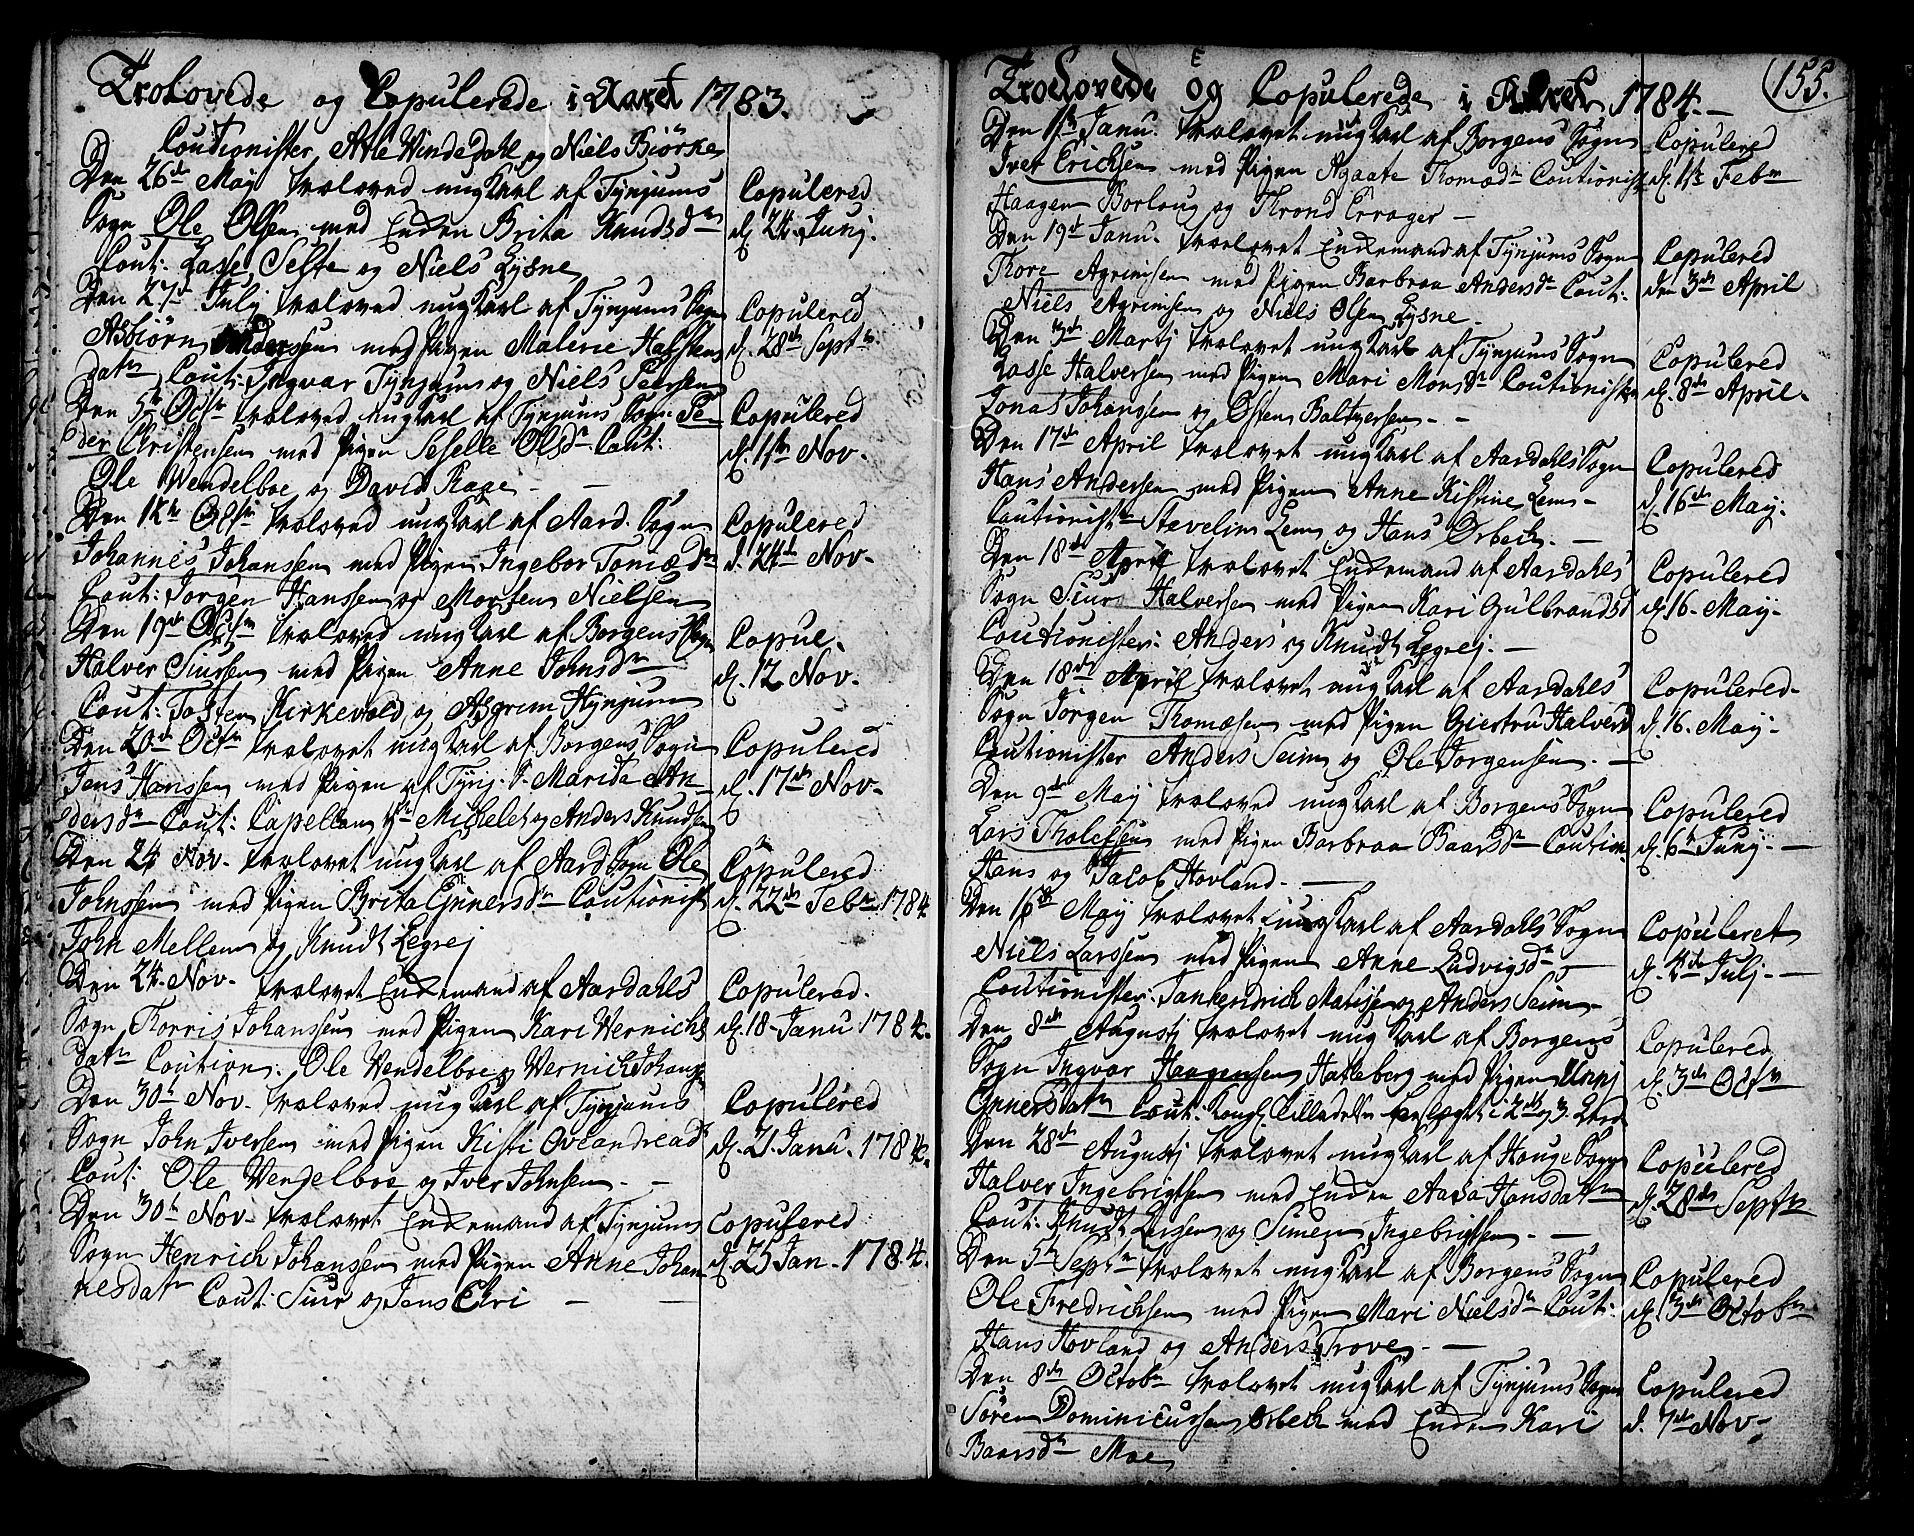 Trolovede og Copulerede i Aaret 1783.
Coutionister, Atle Windedahl og Niels Biörke
Den 26de May troloved ungkarl af Tynjums
Sogn Ole Olsen med Enken Brita Knudsdr
Cout: Lasse Sefte og Niels Lysne
Copulered
d. 24. Junj.
Den 27de July troloved ungkarl af Tynjums Sogn
Asbiörn Andersen med Pigen Malene Halstens
datr Cout: Ingvar Tynjum og Niels Persen
Copulered
d. 28de Septr
Den 5te Octr troloved ungkarl af Tynjums Sogn Pe
der Christensen med Pigen Seselle Olsdr Cout:
Ole Wendelboe og David Rage - -
Copulered
d. 11te Nov.
Den 12te Octr troloved ungkarl af Aard. Sogn
Johannes Johansen med Pigen Ingebor Tomædr
Cout: Jorgen Hanssen og Morten Nielsen
Copulered
d. 24de Nov.
Den 19de Octr trolovet ungkarl af Borgens Sogn
Halver Siurssen med Pigen Anne Johnsdr
Cout: Tosten Kirkevold og Asgrim Hynjum
Copule.
d. 12 Nov.
Den 20de Octr trolovet ungkarl af Borgens Sogn
Jens Hanssen med Pigen af Tynj. S. Marida An
dersdr Cout: Capellan Hr Michelet og Anders Knudsen
Copulered
d. 17de Nov.
Den 24 Nov. trolovet ungkarl af Aard Sogn Ole
Johnssen med Pigen Brita Einersdr Coutionist
John Mellem og Knudt Legrej
Copulered
d. 22de Febr. 1784
Den 24. Nov. trolovet Enkemand af Aardahls
Sogn Thorris Johanssen med Pigen Kari Wernichs
datr Coution: Ole Wendelboe og Wernich Johans
Copulered.
d. 18. Janu 1784.
Den 30te Nov. trolovet ungkarl af Tynjums
Sogn John Iversen med Pigen Kisti Oveandread
Cout: Ole Wendelboe og Iver Johnsen. -
Copulered
d. 21. Janu. 1784.
Den 30te Nov. trolovet Enkemand af Tynjums
Sogn Henrich Johansen med Pigen Anne Johan
nesdatr Cout: Siur og Jens Elri - -
Copulered
d. 25 Jan. 1784.
Trolovede og Copulerede i Aaret 1784.-
155.
Den 11te Janu. trolovet ungkarl af Borgens Sogn
Iver Erichsen med Pigen Agaate Thomædr Coutionist
Haagen Borloug og Trond Errager -
Copulered
d. 11te Febr
Den 19de Janu. trolovet Enkemand af Tynjums Sogn
Tore Agrimsen med Pigen Barbraa Andersdr Cout:
Niels Agrimsen og Niels Olsen Lysne.
Copulered
den 3de April
Den 3de Martj trolovet ungkarl af Tynjums Sogn
Lasse Halversen med Pigen Mari Monsdr Coutionister
Jonas Johanssen og Osten Baltzersen - -
Copulered
d. 8de April.
Den 17de April trolovet ungkarl af Aardahls Sogn
Hans Andersen med Pigen Anne Kistine Lem -
Coutionistr Stævelin Lem og Hans Orbech. -
Copulered
d. 16de May.
Den 18de April trolovet Enkemand af Aardahls
Sogn Siur Halversen med Pigen Kari Gulbrandsd
Coutionister: Anders og Knudt Legrej. -
Copulered
d. 16. May.
Den 18de April trolovet ungkarl af Aardahls
Sogn Jörgen Thomæsen med Pigen Giertru Halversd
Coutionister Anders Seim og Ole Jorgensen. -
Copulered.
d. 16. May.
Den 9de May troloved ungkarl af Borgens Sogn
Lars Tholefsen med Pigen Barbraa Baarsdr Coution.
Hans og Jacob Hovland. -
Copulered
d. 6te Junj. -
Den 16de May trolovet ungkarl af Aardahls Sogn
Niels Larssen med Pigen Anne Ludvigsdr -
Coutionister: Jankendrich Matisen og Anders Seim -
Copuleret
d. 4de Julj. -
Den 8de Augustj trolovet ungkarl af Borgens
Sogn Ingvar Haagensen Hatleberg med Pigen Unni
Einersdatr Cout: kongl. tilladelse forlæget i 2det og 3. Led
Copulered
d. 3de Octr
Den 28de Augustj trolovet ungkarl af Hauge Sogn
Halver Ingebrigtsen med Enken Aasa Hansdatr
Cout: Knudt Larsen og Simen Ingebrigtsen. -
Copulered
d. 28de Septr
Den 5te Septr trolovet ungkarl af Borgens Sogn
Ole Fredrichsen med Pigen Mari Nielsdr Cout:
Hans Hovland og Anders Trove. -
Copulered
d. 3de Octobr
Den 8de Octobr trolovet ungkarl af Tynjums Sogn
Sören Dominicussen Orbech med Enken Kari
Baarsdr Moe
Copulered
d. 7de Nov.